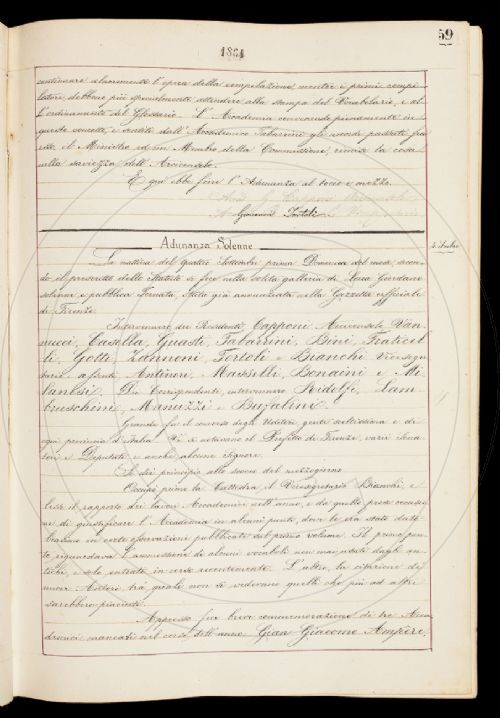 59
1864
continuare alacremente l'opera della compilazione, mentre i primi compi-
latori, debbono più specialmente attendere alla stampa del Vocabolario, e al-
l'ordinamento del Glossario. L'Accademia convenendo pienamente in
questo concetto, e sentiti dall'Arciconsolo Tabarrini gli accordi passati fra
esso il Ministro ed un Membro della Commissione, rimise la cosa
nella saviezza dell'Arciconsolo.
E qui ebbe fine l'Adunanza al tocco e mezzo.
Giovanni Tortoli
Adunanza Solenne
4 7bre
La mattina del quattro Settembre prima Domenica del mese, secon-
do il prescritto dello Statuto si fece nella solita galleria di Luca Giordano
solenne e pubblica Tornata, stata già annunziata nella Gazzetta ufficiale
di Firenze.
Intervennero dei Residenti, Capponi Arciconsolo Van-
nucci, Casella, Guasti, Tabarrini, Bini, Fraticel-
li, Gotti, Zannoni, Tortoli e Bianchi Vicesegre-
tario assenti Antinori, Masselli, Bonaini e Mi-
lanesi. Dei Corrispondenti, intervennero Ridolfi, Lam-
bruschini, Manuzzi e Bufalini.
Grande fu il concorso degli Uditori, gente scelta e di
ogni provincia d'Italia. Vi si notarono il Prefetto di Firenze, varii Sena-
tori e Deputati e anche alcune Signore.
Si diè principio alle tocco del mezzogiorno.
Occupò prima la Cattedra il Vicesegretario Bianchi, e
lesse il rapporto dei lavori Accademici nell'anno, e da quello prese occasio-
ne di giustificare l'Accademia in alcuni punti, dove le era stato dato
biasimo in certe osservazioni pubblicate sul primo volume. Il primo pun-
to riguardava l'ammissione di alcuni vocaboli non mai usati dagli an-
tichi, e solo entrati in corso recentemente. L'altro, la citazione di
nuovi Autori, tra i quali non si vedevano quelli che più ad altri
sarebbero piaciuti.
Appresso fece breve commemorazione di tre Acca-
demici mancati nel corso dell'anno Gian Giacomo Ampère,